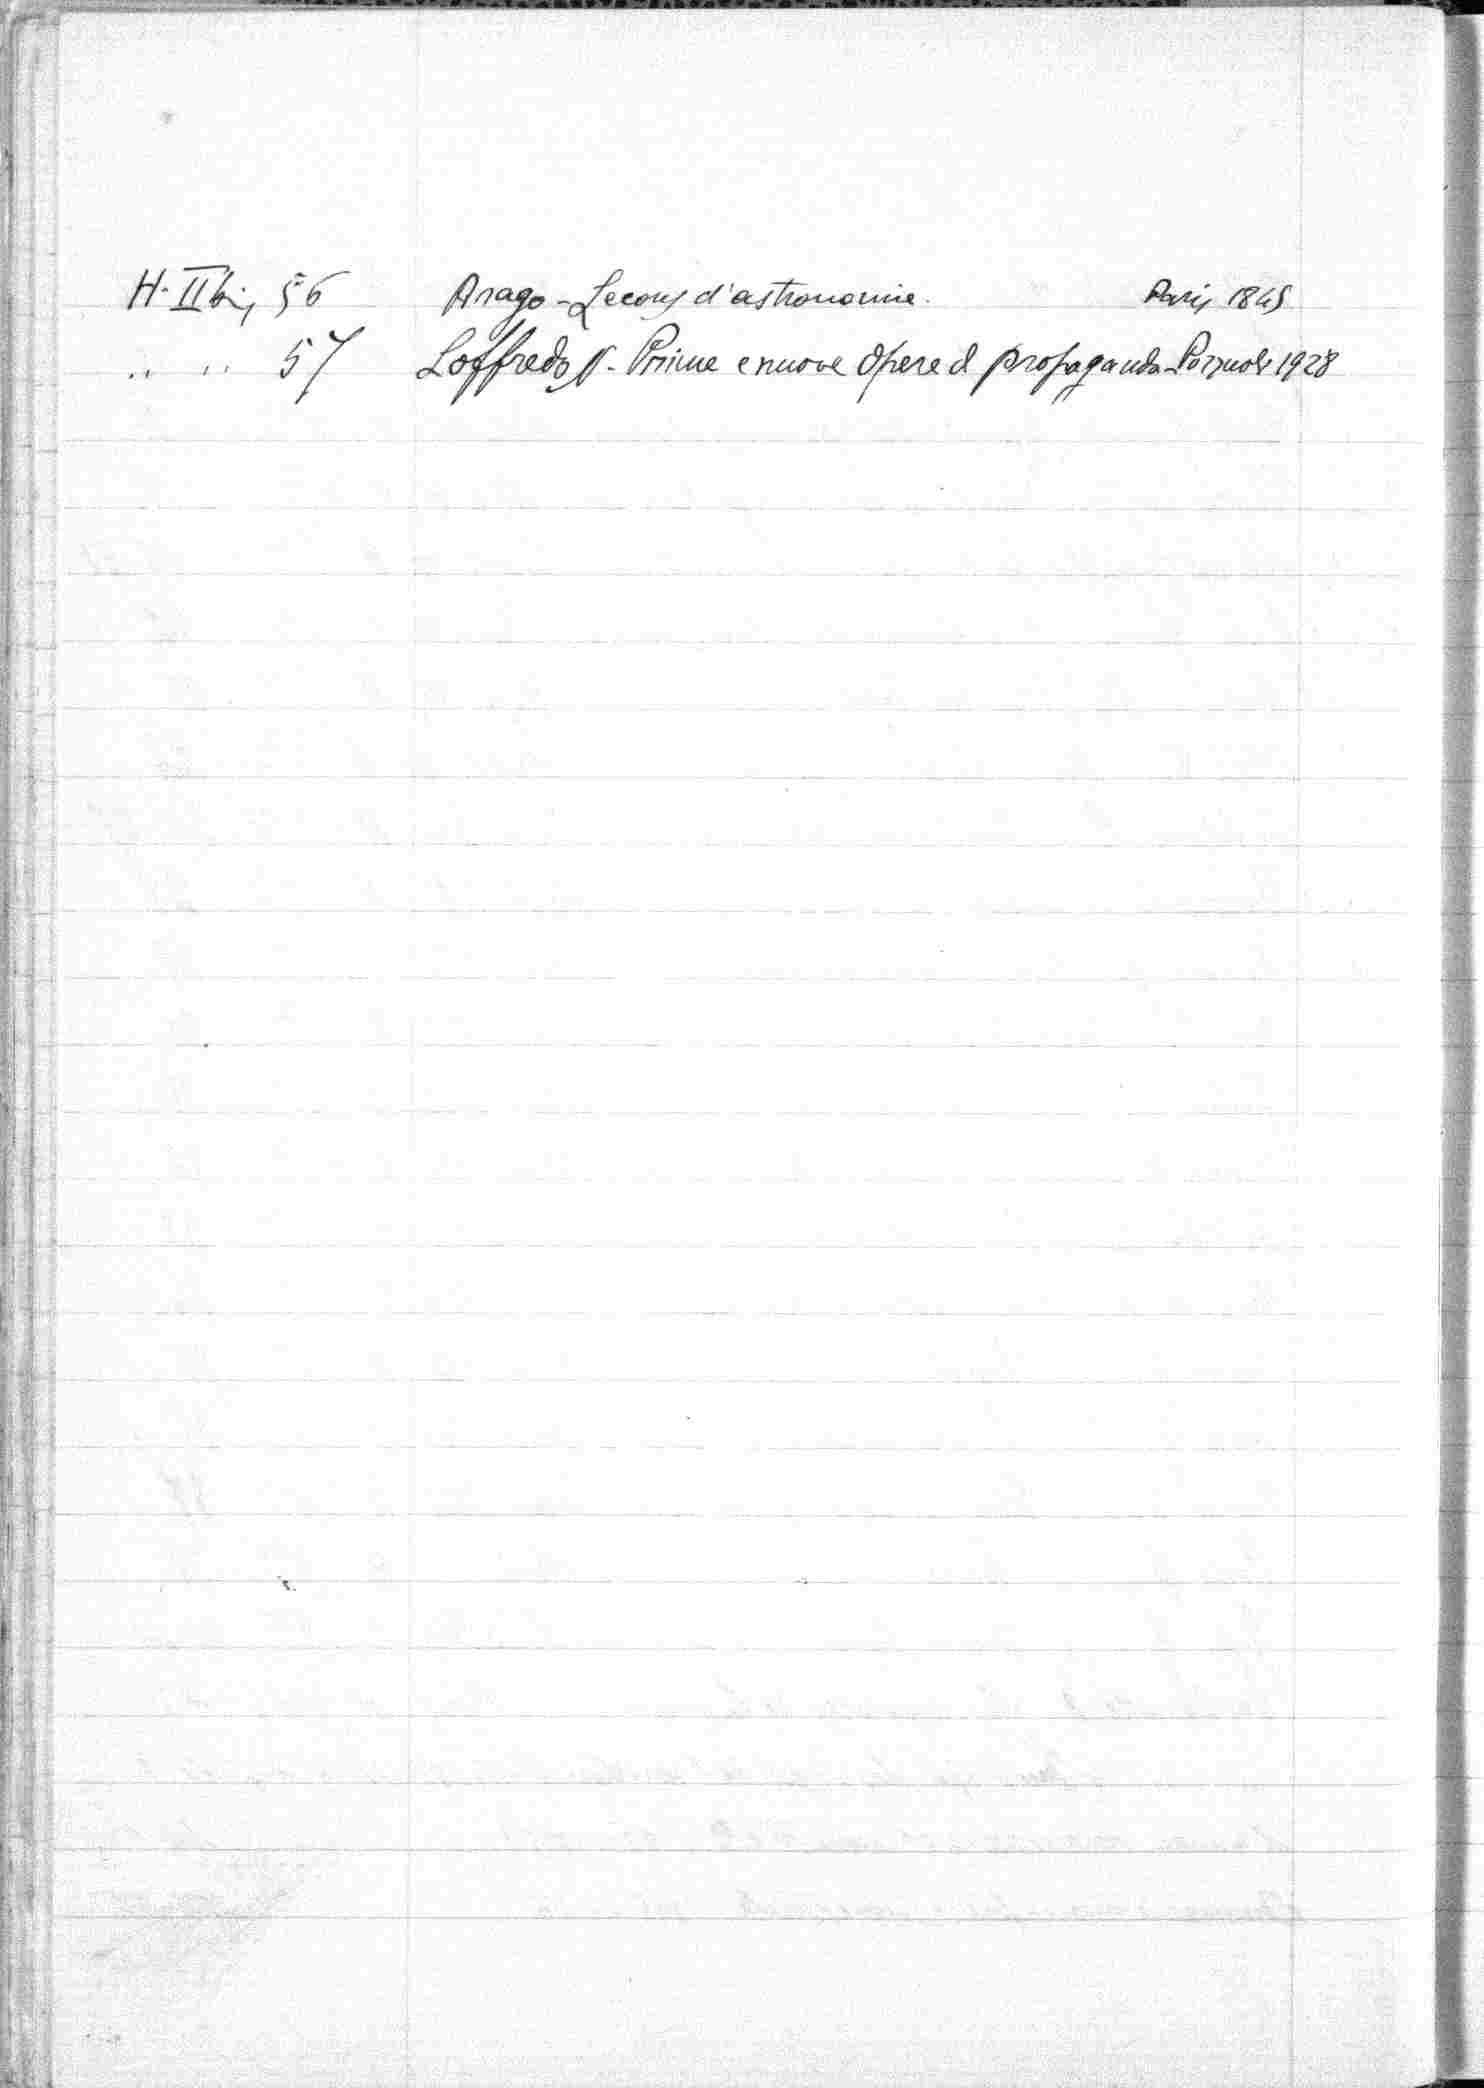 H. II bis 56 Arago - Leçons d'astronomie. Paris 1845
" " 57 Loffredo - Prime e nuove opere di propaganda - Pozzuoli 1928